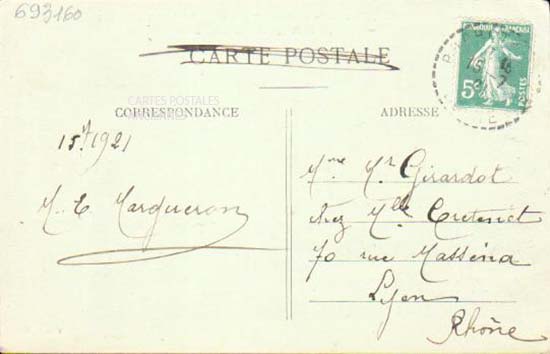 693160
CARTE POSTALE
CARTES POSTALES
CORRESPONDANCE
ADRESSE
FRANÇAISE
5c
POSTES
1921
M. E. Margueron
Mme Mr Girardot
chez Mlle Cretenet
70 rue Masséna
Lyon
Rhône